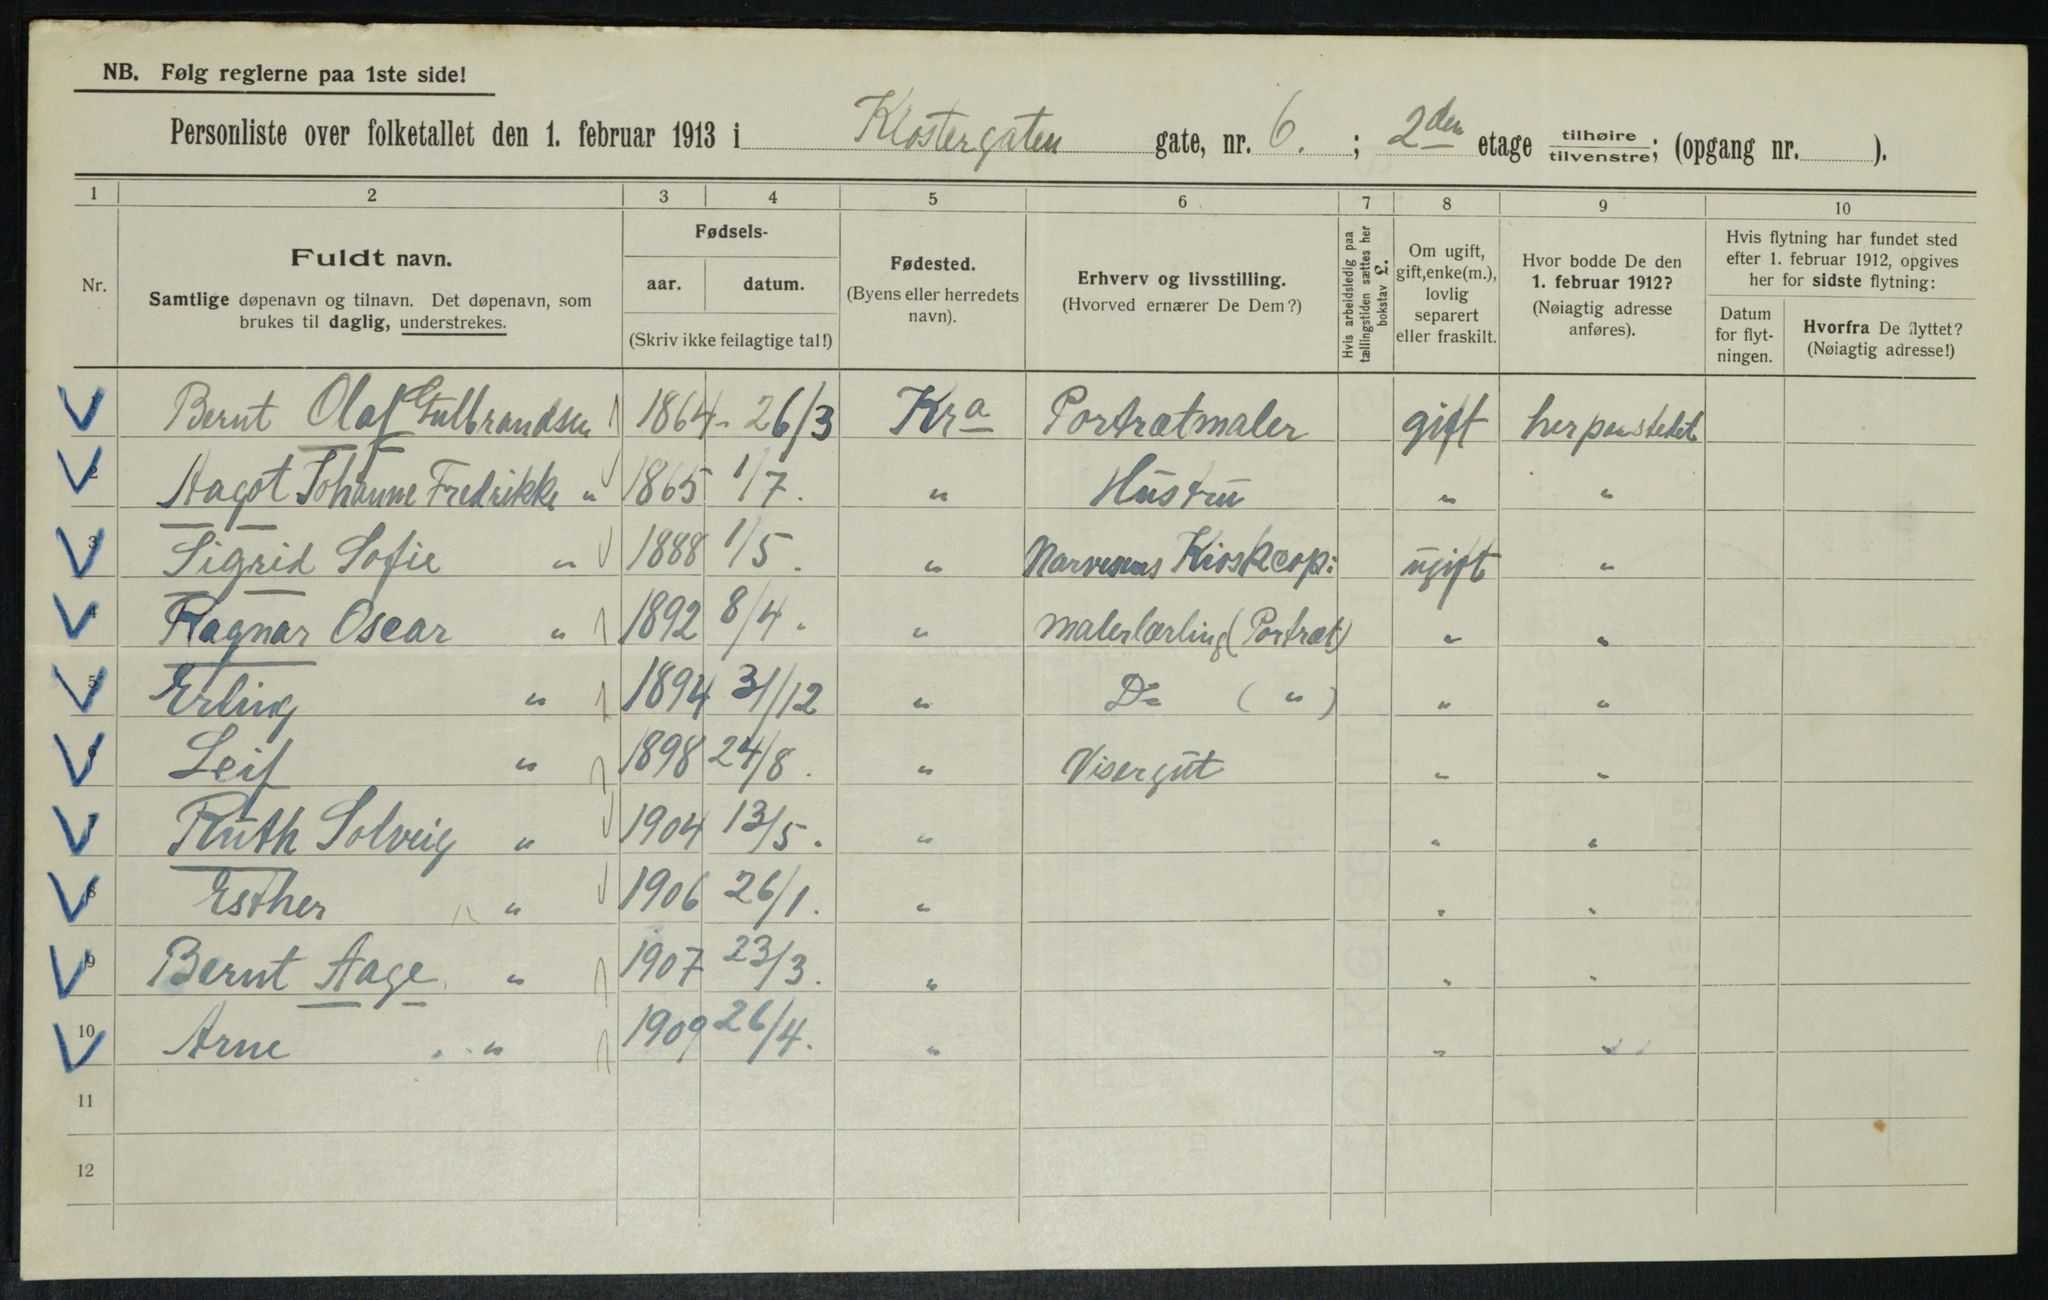 NB. Følg reglerne paa 1ste side!
Personliste over folketallet den 1. februar 1913 i Klostergaten gate, nr. 6. ; 2den etage tilhøire/tilvenstre; (opgang nr. ).
1 2 3 4 5 6 7 8 9 10
Nr.
Fuldt navn.
Samtlige døpenavn og tilnavn. Det døpenavn, som
brukes til daglig, understrekes.
Fødsels-
aar. datum.
(Skriv ikke feilagtige tal!)
Fødested.
(Byens eller herredets
navn).
Erhverv og livsstilling.
(Hvorved ernærer De Dem?)
Hvis arbeidsledig paa
tællingstiden sættes her
bokstav £.
Om ugift,
gift, enke(m.),
lovlig
separert
eller fraskilt.
Hvor bodde De den
1. februar 1912?
(Nøiagtig adresse
anføres).
Hvis flytning har fundet sted
efter 1. februar 1912, opgives
her for sidste flytning:
Datum
for flyt-
ningen.
Hvorfra De flyttet?
(Nøiagtig adresse!)
1 Bernt Olaf Gulbrandsen 1864 - 26/3 Kra Portrætmaler gift her paa stedet
2 Aagot Johanne Fredrikke " 1865 1/7. " Hustru " "
3 Sigrid Sofie " 1888 1/5. " Narvesens Kioskeop: ugift "
4 Ragnar Oscar " 1892 8/4. " Malerlærling (Portræt) " "
5 Erling " 1894 31/12 " Do ( " ) " "
6 Leif " 1898 24/8. " Visergut " "
7 Ruth Solveig " 1904 13/5. " " "
8 Esther " 1906 26/1. " " "
9 Bernt Aage " 1907 23/3. " " "
10 Arne " 1909 26/4. " " "
11
12